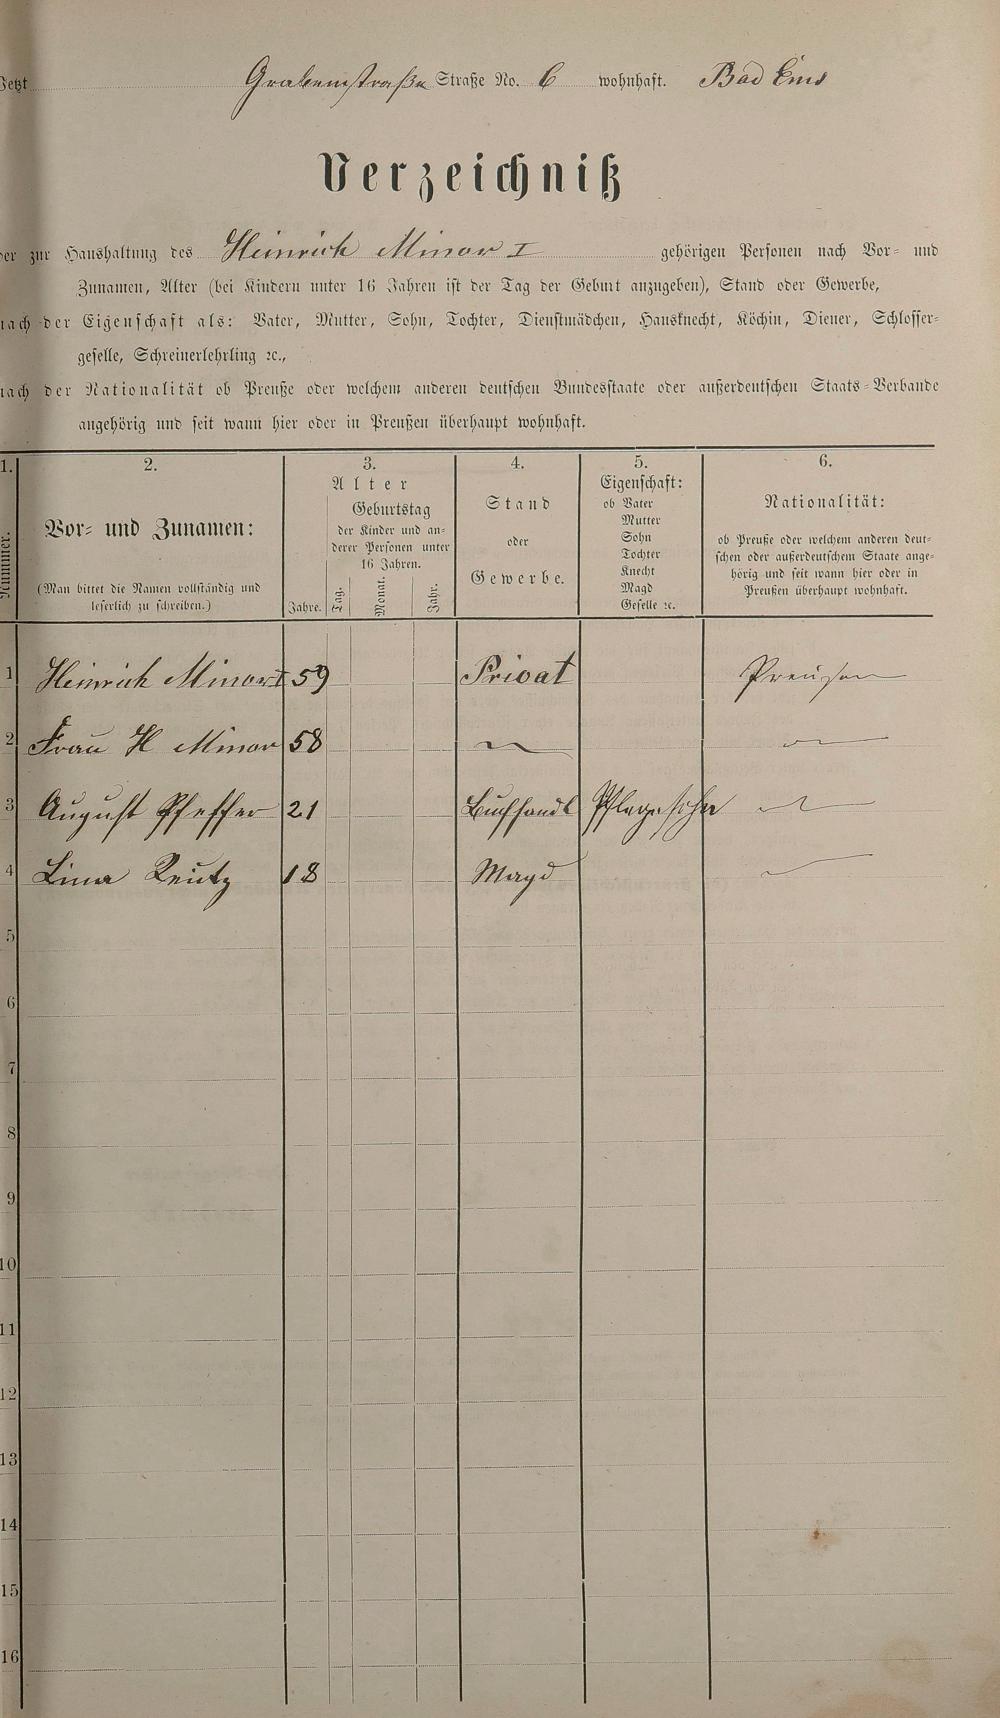 Jetzt Grabenstraße Straße No. 6 wohnhaft. Bad Ems
Verzeichniß
der zur Haushaltung des Heinrich Minor I gehörigen Personen nach Vor- und
Zunamen, Alter (bei Kindern unter 16 Jahren ist der Tag der Geburt anzugeben), Stand oder Gewerbe,
nach der Eigenschaft als: Vater, Mutter, Sohn, Tochter, Dienstmädchen, Hausknecht, Köchin, Diener, Schlosser-
geselle, Schreinerlehrling ꝛc.,
nach der Nationalität ob Preuße oder welchem anderen deutschen Bundesstaate oder außerdeutschen Staats-Verbande
angehörig und seit wann hier oder in Preußen überhaupt wohnhaft.
1.
Nummer.
2.
Vor- und Zunamen:
(Man bittet die Namen vollständig und
leserlich zu schreiben.)
3.
Alter
Geburtstag
der Kinder und an-
derer Personen unter
16 Jahren.
Jahre. Tag. Monat. Jahr.
4.
Stand
oder
Gewerbe.
5.
Eigenschaft:
ob Vater
Mutter
Sohn
Tochter
Knecht
Magd
Geselle ꝛc.
6.
Nationalität:
ob Preuße oder welchem anderen deut-
schen oder außerdeutschem Staate ange-
hörig und seit wann hier oder in
Preußen überhaupt wohnhaft.
1 Heinrich Minor I 59 Privat Preußen
2 Frau H Minor 58
3 August Pfeffer 21 Buchhandl Pflegesohn
4 Lina Reutz 18 Magd
5
6
7
8
9
10
11
12
13
14
15
16